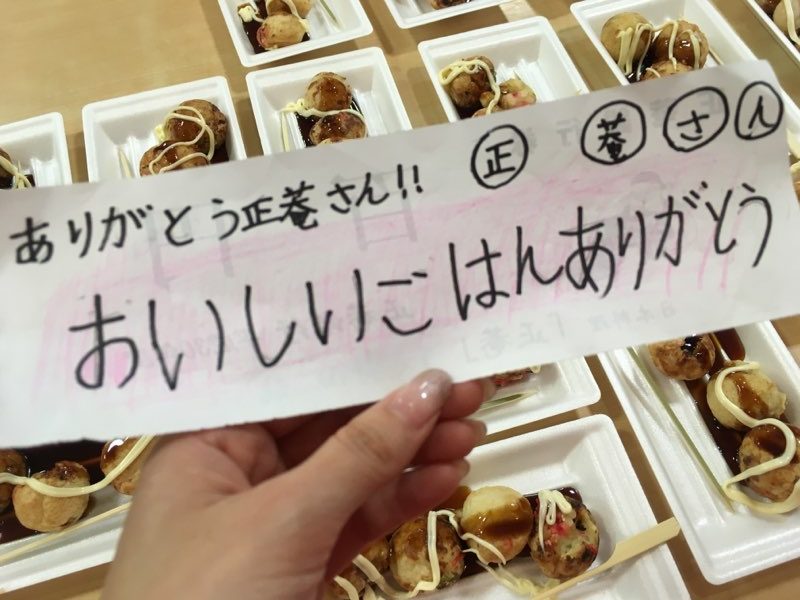 正菴さん
ありがとう正菴さん!!
おいしいごはんありがとう